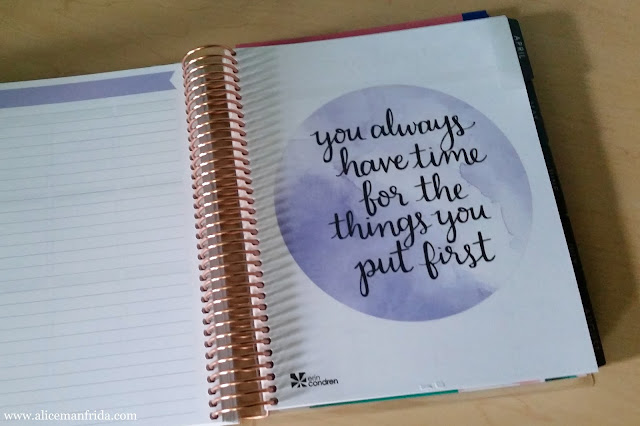 APRIL
you always
have time
for the
things you
put first
erin
condren
www.alicemanfrida.com